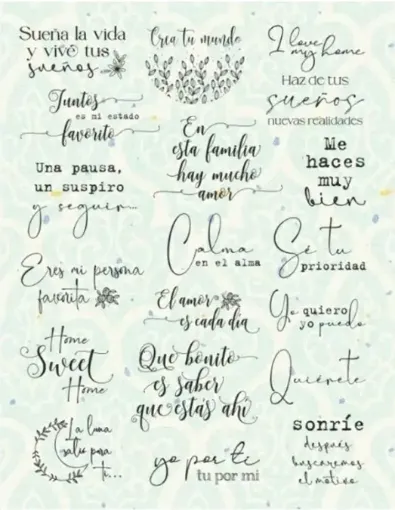 Sueña la vida
y vive tus
sueños
Crea tu mundo
I love
my home
Juntos
es mi estado
favorito
Haz de tus
sueños
nuevas realidades
En
esta familia
hay mucho
amor
Una pausa,
un suspiro
y seguir...
Me
haces
muy
bien
Calma
en el alma
Sé tu
prioridad
Eres mi persona
favorita
El amor
es cada día
Yo quiero
yo puedo
Home
Sweet
Home
Que bonito
es saber
que estás ahí
Quiérete
La luna
salió para
ti...
yo por ti
tu por mi
sonríe
después
buscaremos
el motivo